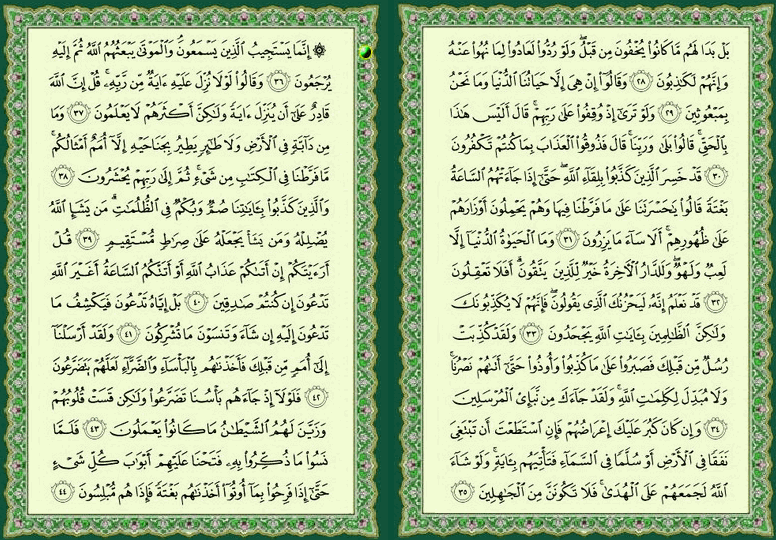 بَلْ بَدَا لَهُم مَّا كَانُوا۟ يُخْفُونَ مِن قَبْلُ ۖ وَلَوْ رُدُّوا۟ لَعَادُوا۟ لِمَا نُهُوا۟ عَنْهُ
وَإِنَّهُمْ لَكَـٰذِبُونَ ٢٨ وَقَالُوٓا۟ إِنْ هِىَ إِلَّا حَيَاتُنَا ٱلدُّنْيَا وَمَا نَحْنُ
بِمَبْعُوثِينَ ٢٩ وَلَوْ تَرَىٰٓ إِذْ وُقِفُوا۟ عَلَىٰ رَبِّهِمْ ۚ قَالَ أَلَيْسَ هَـٰذَا
بِٱلْحَقِّ ۚ قَالُوا۟ بَلَىٰ وَرَبِّنَا ۚ قَالَ فَذُوقُوا۟ ٱلْعَذَابَ بِمَا كُنتُمْ تَكْفُرُونَ
٣٠ قَدْ خَسِرَ ٱلَّذِينَ كَذَّبُوا۟ بِلِقَآءِ ٱللَّهِ ۖ حَتَّىٰٓ إِذَا جَآءَتْهُمُ ٱلسَّاعَةُ
بَغْتَةً قَالُوا۟ يَـٰحَسْرَتَنَا عَلَىٰ مَا فَرَّطْنَا فِيهَا وَهُمْ يَحْمِلُونَ أَوْزَارَهُمْ
عَلَىٰ ظُهُورِهِمْ ۚ أَلَا سَآءَ مَا يَزِرُونَ ٣١ وَمَا ٱلْحَيَوٰةُ ٱلدُّنْيَآ إِلَّا
لَعِبٌ وَلَهْوٌ ۖ وَلَلدَّارُ ٱلْـَٔاخِرَةُ خَيْرٌ لِّلَّذِينَ يَتَّقُونَ ۗ أَفَلَا تَعْقِلُونَ
٣٢ قَدْ نَعْلَمُ إِنَّهُۥ لَيَحْزُنُكَ ٱلَّذِى يَقُولُونَ ۖ فَإِنَّهُمْ لَا يُكَذِّبُونَكَ
وَلَـٰكِنَّ ٱلظَّـٰلِمِينَ بِـَٔايَـٰتِ ٱللَّهِ يَجْحَدُونَ ٣٣ وَلَقَدْ كُذِّبَتْ
رُسُلٌ مِّن قَبْلِكَ فَصَبَرُوا۟ عَلَىٰ مَا كُذِّبُوا۟ وَأُوذُوا۟ حَتَّىٰٓ أَتَىٰهُمْ نَصْرُنَا ۚ
وَلَا مُبَدِّلَ لِكَلِمَـٰتِ ٱللَّهِ ۚ وَلَقَدْ جَآءَكَ مِن نَّبَإِى۟ ٱلْمُرْسَلِينَ
٣٤ وَإِن كَانَ كَبُرَ عَلَيْكَ إِعْرَاضُهُمْ فَإِنِ ٱسْتَطَعْتَ أَن تَبْتَغِىَ
نَفَقًا فِى ٱلْأَرْضِ أَوْ سُلَّمًا فِى ٱلسَّمَآءِ فَتَأْتِيَهُم بِـَٔايَةٍ ۚ وَلَوْ شَآءَ
ٱللَّهُ لَجَمَعَهُمْ عَلَى ٱلْهُدَىٰ ۚ فَلَا تَكُونَنَّ مِنَ ٱلْجَـٰهِلِينَ ٣٥
۞ إِنَّمَا يَسْتَجِيبُ ٱلَّذِينَ يَسْمَعُونَ ۘ وَٱلْمَوْتَىٰ يَبْعَثُهُمُ ٱللَّهُ ثُمَّ إِلَيْهِ
يُرْجَعُونَ ٣٦ وَقَالُوا۟ لَوْلَا نُزِّلَ عَلَيْهِ ءَايَةٌ مِّن رَّبِّهِۦ ۚ قُلْ إِنَّ ٱللَّهَ
قَادِرٌ عَلَىٰٓ أَن يُنَزِّلَ ءَايَةً وَلَـٰكِنَّ أَكْثَرَهُمْ لَا يَعْلَمُونَ ٣٧ وَمَا
مِن دَآبَّةٍ فِى ٱلْأَرْضِ وَلَا طَـٰٓئِرٍ يَطِيرُ بِجَنَاحَيْهِ إِلَّآ أُمَمٌ أَمْثَالُكُم ۚ
مَّا فَرَّطْنَا فِى ٱلْكِتَـٰبِ مِن شَىْءٍ ۚ ثُمَّ إِلَىٰ رَبِّهِمْ يُحْشَرُونَ ٣٨
وَٱلَّذِينَ كَذَّبُوا۟ بِـَٔايَـٰتِنَا صُمٌّ وَبُكْمٌ فِى ٱلظُّلُمَـٰتِ ۗ مَن يَشَإِ ٱللَّهُ
يُضْلِلْهُ وَمَن يَشَأْ يَجْعَلْهُ عَلَىٰ صِرَٰطٍ مُّسْتَقِيمٍ ٣٩ قُلْ
أَرَءَيْتَكُمْ إِنْ أَتَىٰكُمْ عَذَابُ ٱللَّهِ أَوْ أَتَتْكُمُ ٱلسَّاعَةُ أَغَيْرَ ٱللَّهِ
تَدْعُونَ إِن كُنتُمْ صَـٰدِقِينَ ٤٠ بَلْ إِيَّاهُ تَدْعُونَ فَيَكْشِفُ مَا
تَدْعُونَ إِلَيْهِ إِن شَآءَ وَتَنسَوْنَ مَا تُشْرِكُونَ ٤١ وَلَقَدْ أَرْسَلْنَآ
إِلَىٰٓ أُمَمٍ مِّن قَبْلِكَ فَأَخَذْنَـٰهُم بِٱلْبَأْسَآءِ وَٱلضَّرَّآءِ لَعَلَّهُمْ يَتَضَرَّعُونَ
٤٢ فَلَوْلَآ إِذْ جَآءَهُم بَأْسُنَا تَضَرَّعُوا۟ وَلَـٰكِن قَسَتْ قُلُوبُهُمْ
وَزَيَّنَ لَهُمُ ٱلشَّيْطَـٰنُ مَا كَانُوا۟ يَعْمَلُونَ ٤٣ فَلَمَّا
نَسُوا۟ مَا ذُكِّرُوا۟ بِهِۦ فَتَحْنَا عَلَيْهِمْ أَبْوَٰبَ كُلِّ شَىْءٍ
حَتَّىٰٓ إِذَا فَرِحُوا۟ بِمَآ أُوتُوٓا۟ أَخَذْنَـٰهُم بَغْتَةً فَإِذَا هُم مُّبْلِسُونَ ٤٤